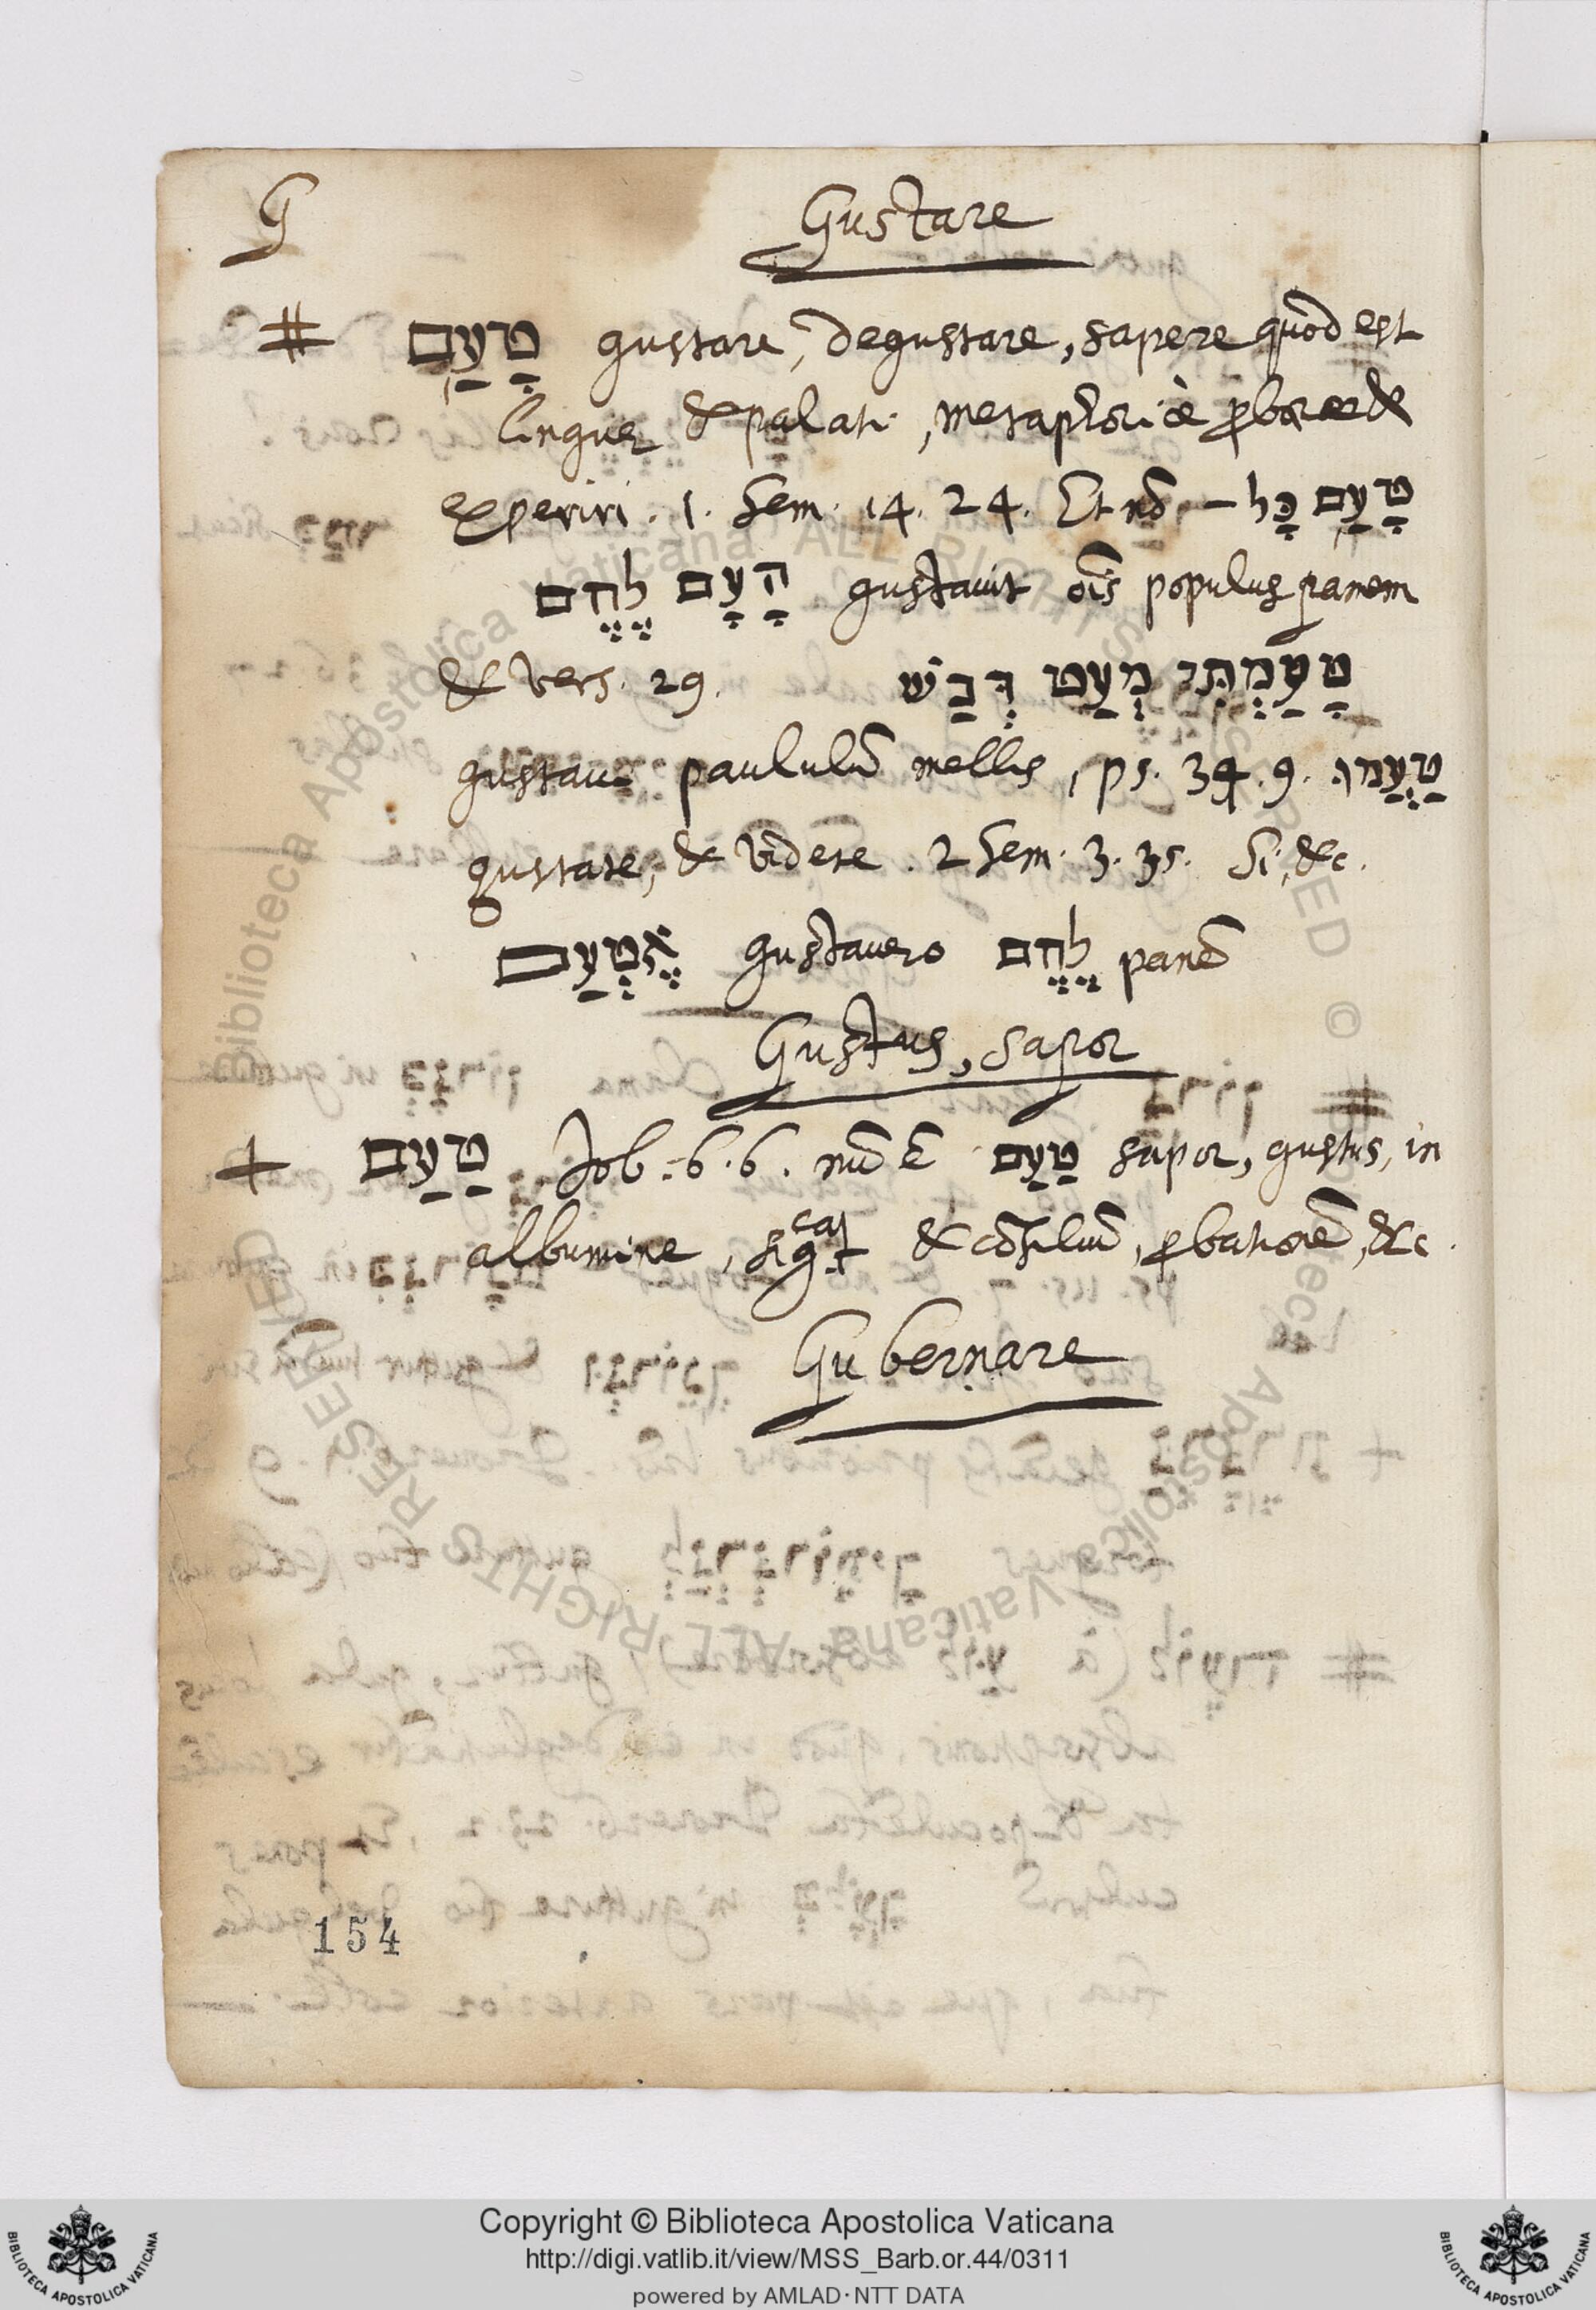 G
Gustare
# טָעַם gustare, degustare, sapere quod est
linguę & palati, metaphoricè ꝓbare &
experiri. 1. Sem. 14. 24. Et nō – טָעַם כָּל
הָעָם לֶחֶם gustavit oīs populus panem
& vers. 29. טָעַמְתִּי מְעַט דְּבַשׁ
gustavi paululū mellis, ps. 34. 9. טַעֲמוּ
gustate, & videte. 2 Sem. 3. 35. Si, &c.
אֶטְעַם gustavero לֶחֶם panē
Gustus, sapor
+ טַעַם Job. 6. 6. nū ē טַעַם sapor, gustus, in
albumine, sigcat & cōsiliū, ꝓbationē, &c.
Gubernare
154
Biblioteca Apostolica Vaticana ALL RIGHTS RESERVED ©
Biblioteca Apostolica Vaticana ALL RIGHTS RESERVED
Copyright © Biblioteca Apostolica Vaticana
http://digi.vatlib.it/view/MSS_Barb.or.44/0311
powered by AMLAD·NTT DATA
BIBLIOTECA APOSTOLICA VATICANA
BIBLIOTECA APOSTOLICA VATICANA